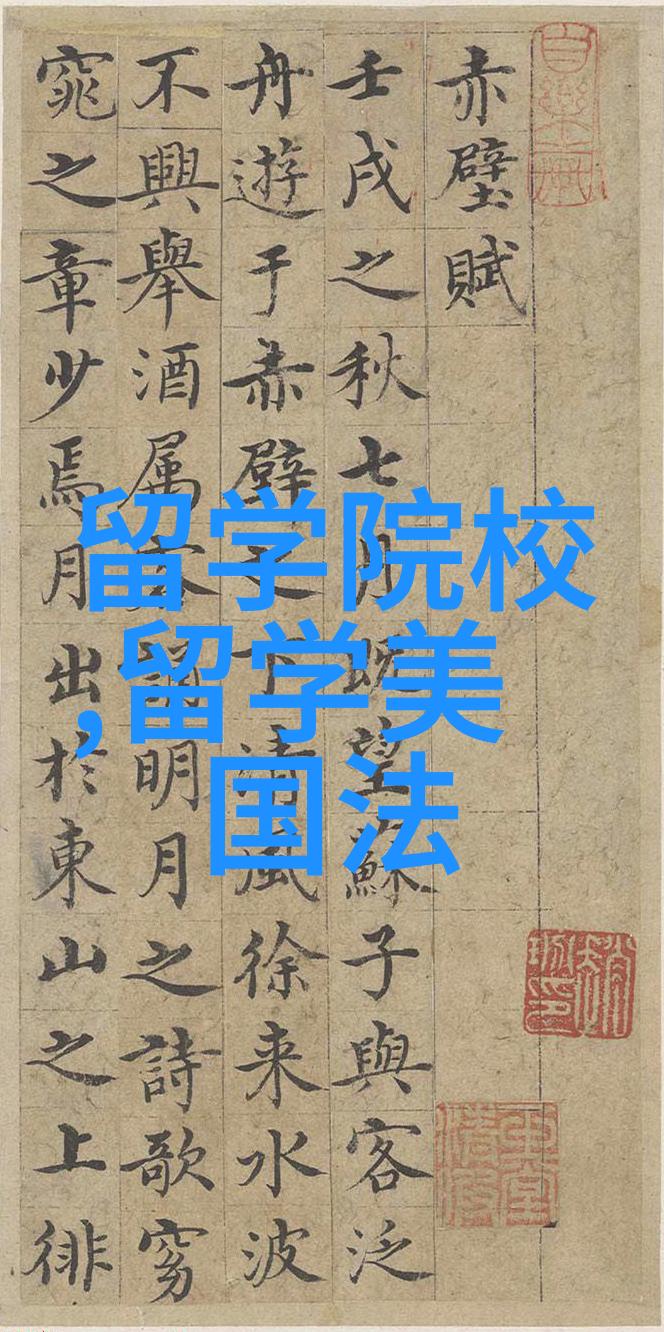 赤壁賦
壬戌之秋七月既望蘇子與客泛
舟遊于赤壁之下清風徐来水波
不興舉酒属客誦明月之詩歌窈
窕之章少焉月出於東山之上徘
留学院校
,留学美
国法